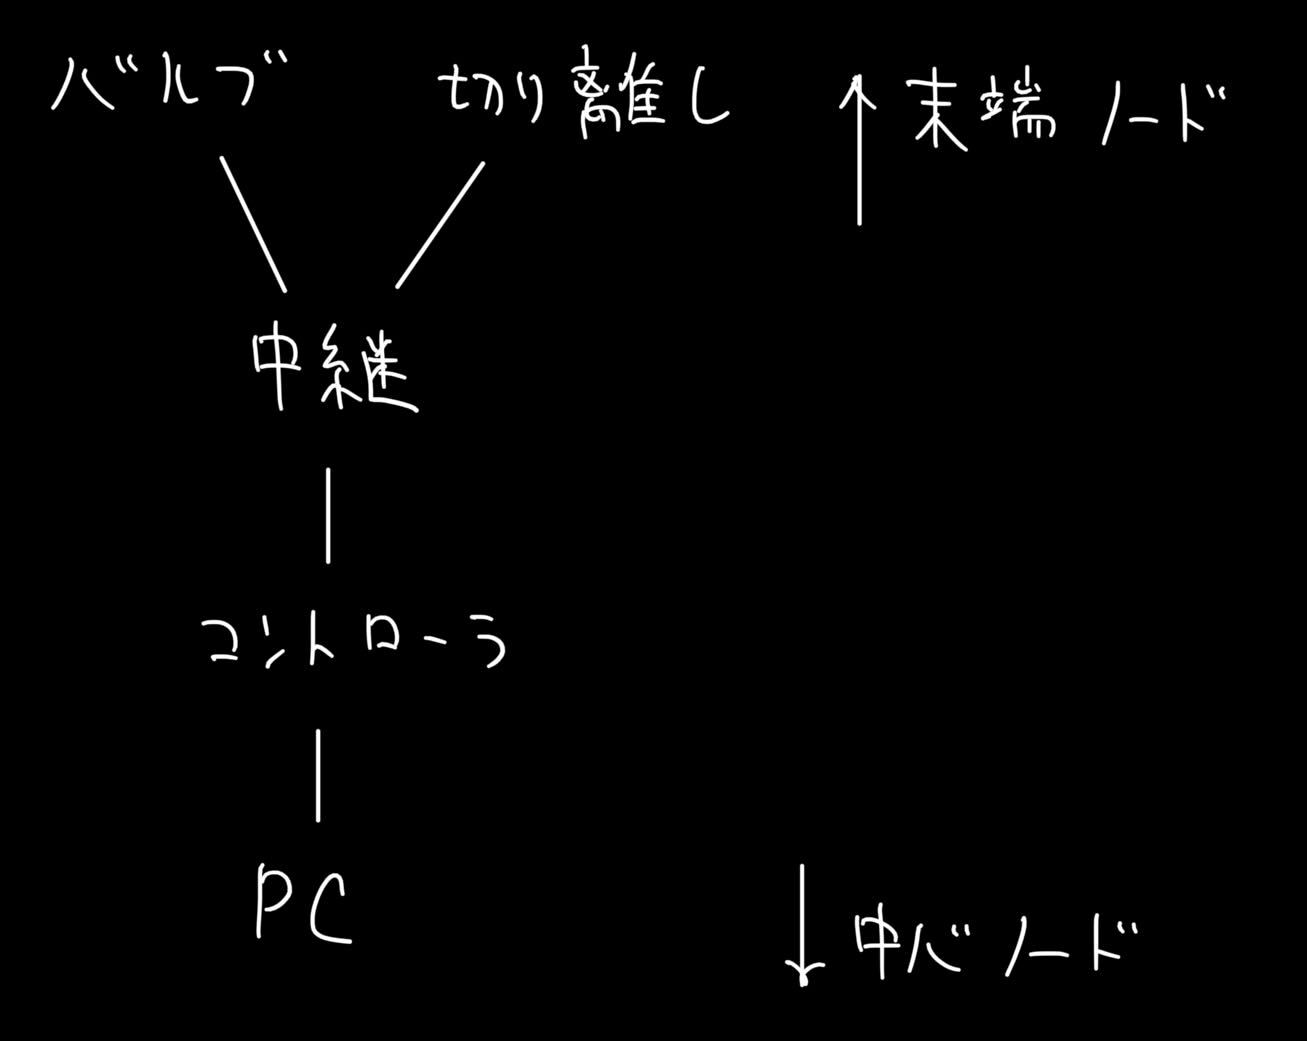 バルブ
切り離し
↑ 末端ノード
中継
コントローラ
PC
↓ 中心ノード